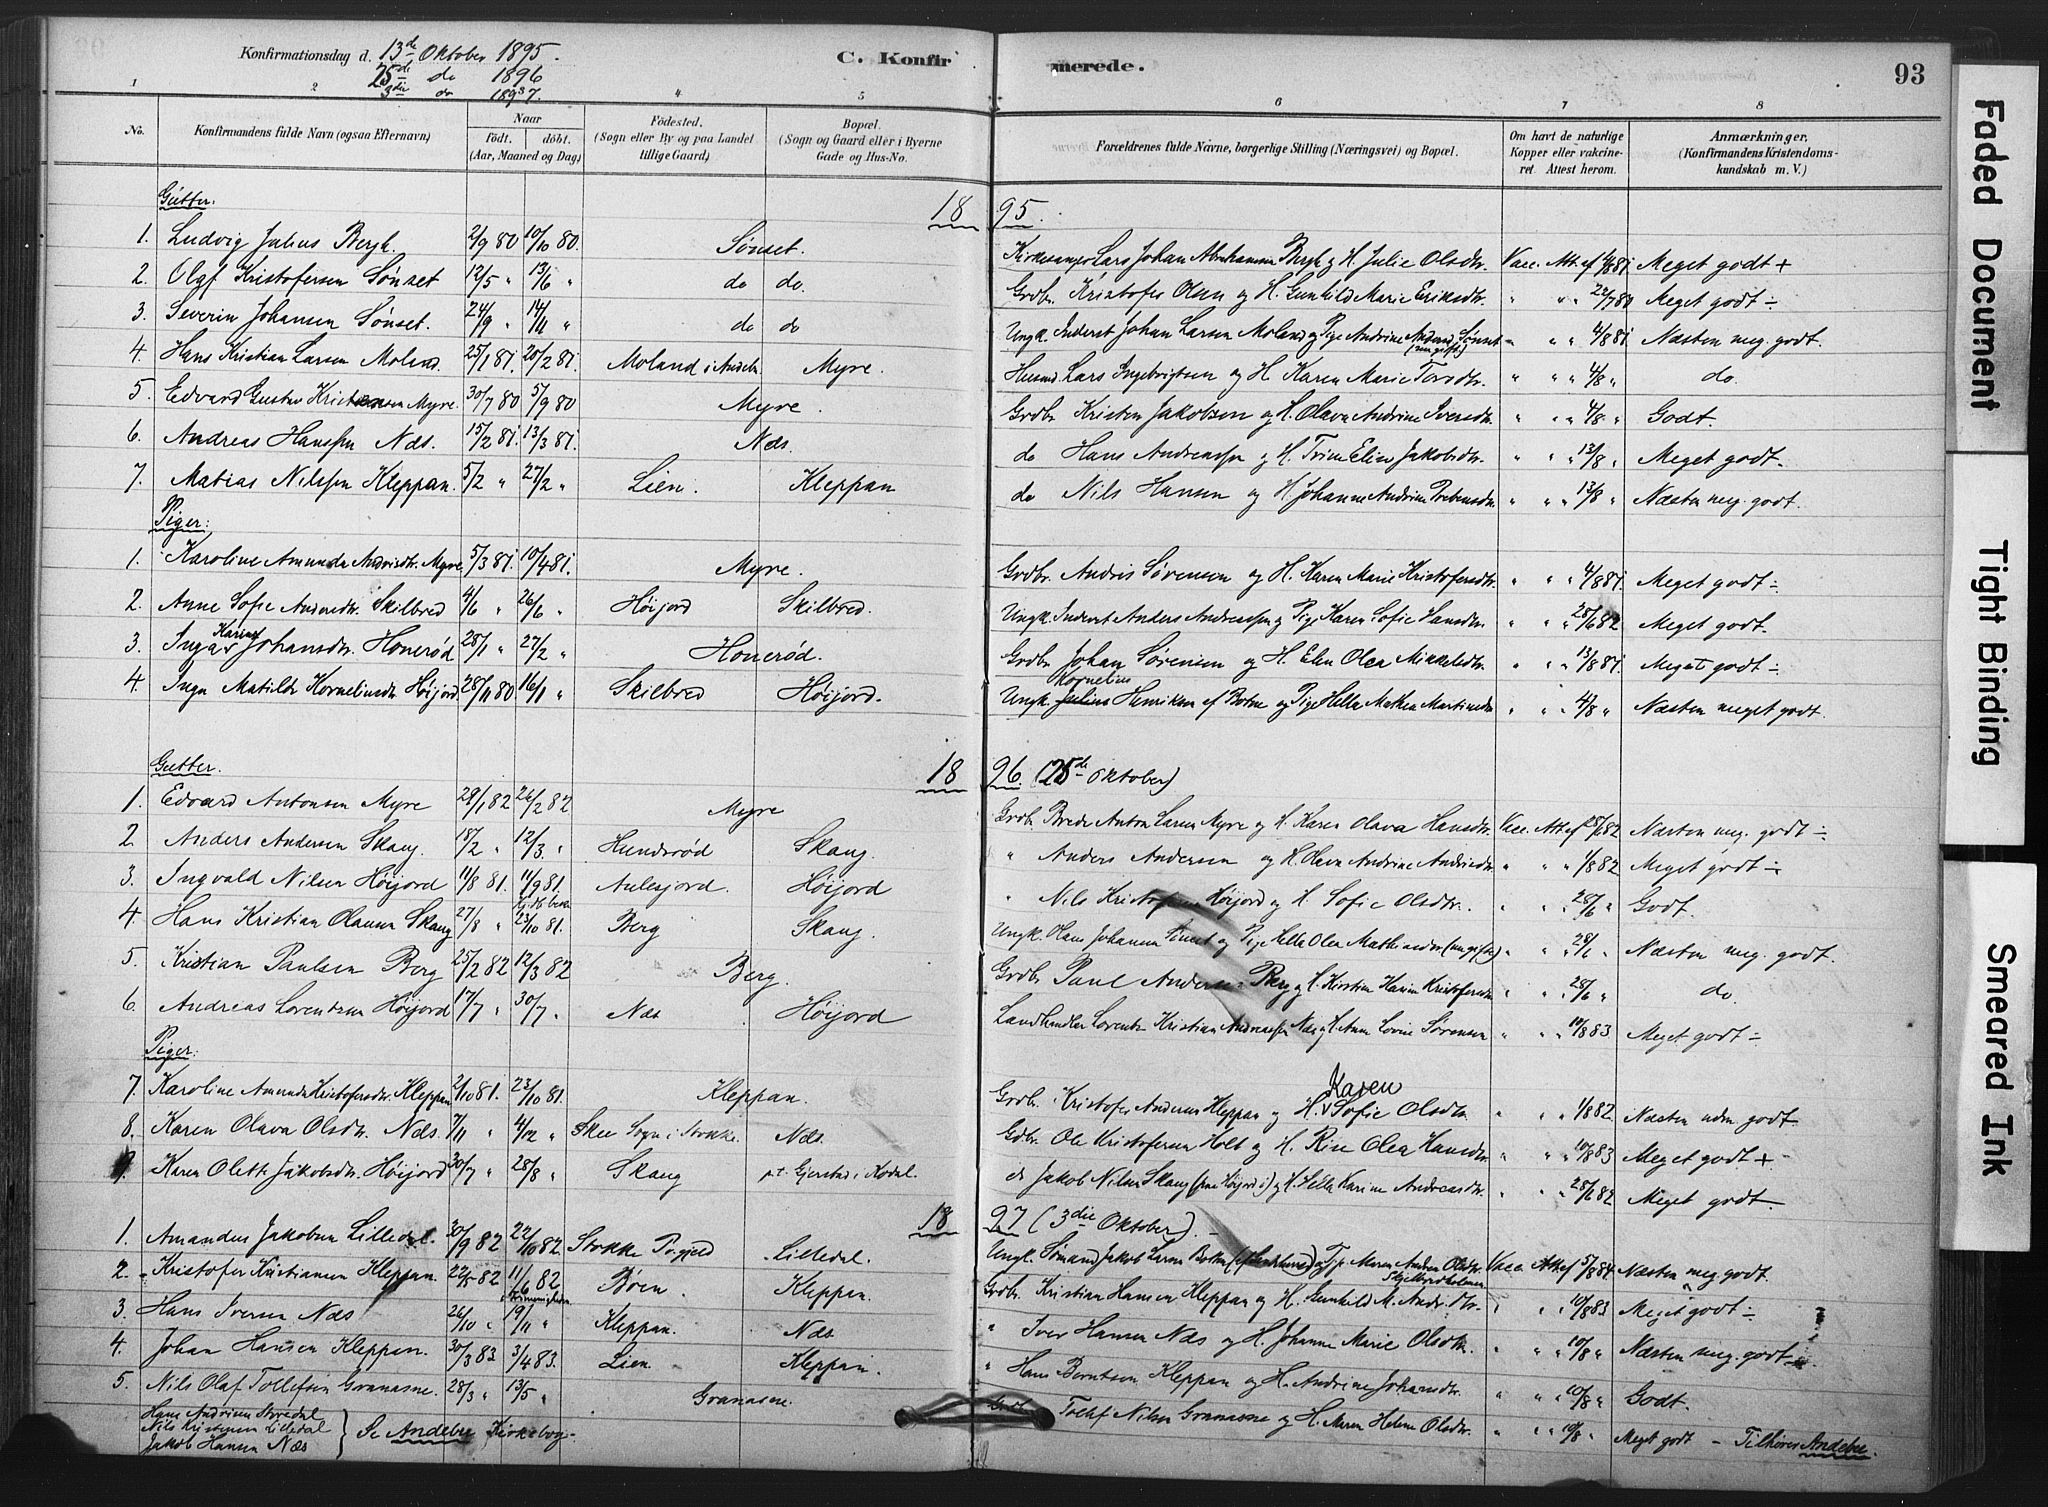 Konfirmationsdag d. 13de Oktober 1895.
25de do 1896
3die do 1897.
C. Konfirmerede.
93
1 2 4 5 6 7 8
No. Konfirmandens fulde Navn (ogsaa Efternavn) Naar født. døbt. (Aar, Maaned og Dag) Fødested. (Sogn eller By og paa Landet tillige Gaard) Bopæl. (Sogn og Gaard eller i Byerne Gade og Hus-No. Forældrenes fulde Navne, borgerlige Stilling (Næringsvei) og Bopæl. Om havt de naturlige Kopper eller vakcineret. Attest herom. Anmærkninger. (Konfirmandens Kristendomskundskab m. V.)
Gutter. 1895.
1. Ludvig Julius Bergh. 2/9 80 10/10 80. Sønset. Kirkesanger Lars Johan Abrahamsen Bergh og H. Julie Olsdtr. Vacc. Att. af 4/8 81. Meget godt +
2. Olaf Kristofersen Sønset 12/5 " 13/6 " do do. Grdbr. Kristofer Olsen og H. Gunhild Marie Eriksdtr. " " " Meget godt -
3. Severin Johansen Sønset. 24/9 " 14/11 " do do Ungk. Inderst Johan Larsen Moland og Pige Andrine Sønset (ungifte) " " 4/8 81. Næsten meg. godt.
4. Hans Kristian Larsen Moland 25/1 81. 20/2 81. Moland i Andebu Myre. Husmd. Lars Ingebrigtsen og H. Karen Marie Torsdtr. " " " 4/8 " do.
5. Edvard Gustav Kristensen Myre. 30/7 80 5/9 80 Myre. Grdbr Kristen Jakobsen og H. Olava Andrine Iversdtr. " " " 4/8 " Godt.
6. Andreas Hanssen Næs. 15/2 81. 13/3 81. Næs. do Hans Andreassen og H. Trine Elise Jakobsdtr. " " " 13/8 " Meget godt -
7. Matias Nilssen Kleppan. 5/2 " 27/2 " Lien. Kleppan do Nils Hansen og H. Johanne Andrine " " " 13/8 " Næsten meg. godt.
Piger:
1. Karoline Amunda Andrisdtr. Myre. 5/3 81. 10/4 81. Myre. Grdbr. Andris Sørensen og H. Karen Marie Kristofersdtr. " " " 4/8 81. Meget godt -
2. Anne Sofie Andersdtr. Skilbred 4/6 " 26/6 " Høijord Skilbred. Ungk. Inderst Anders Andreassen og Pige Karen Sofie Hansdtr. " " " 28/6 82 Meget godt.
3. Inga Karine Johansdtr. Honerød 28/1 " 27/2 " Honerød. Grdbr Johan Sørensen og H. Elen Olea Mikkelsdtr. " " " 13/8 81. Meget godt -
4. Inga Matilde Korneliusdtr Høijord. 28/11 80 16/1 " Skilbred Høijord. Ungk. Julius Kornelius Henriksen af Botne og Pige Helle Mathea Martinsdtr " " " 4/8 " Næsten meget godt.
Gutter. 1896 (25de Oktober)
1. Edvard Antonsen Myre 29/1 82 26/2 82 Myre Grdbr. Brede Anton Larsen Myre og H. Karen Olava Hansdtr. Vacc. Att af 28/6 82 Næsten meg. godt -
2. Anders Andersen Skaug. 18/2 " 12/3 " Hundsrød Skaug. " Anders Andersen og H. Olava Andrine Andrisdtr " " " 1/8 82 Meget godt -
3. Ingvald Nilsen Høijord 11/8 81. 11/9 81. Aulesjord. Høijord " Nils Kristofersen Høijord og H. Sofie Olsdtr. " " 28/6 " Godt.
4. Hans Kristian Olausen Skaug 27/8 " 23/10 81. Berg Skaug. Ungk. Hans Johansen Sønset og Pige Helle Olea (ungifte) " " 28/6 " Næsten meg. godt.
5. Kristian Paulsen Berg 25/2 82 12/3 82 Berg. Grdbr Paul Andersen Berg og H. Kirstine Karine Kristofersdtr " " 28/6 " do.
6. Andreas Lorentsen Høijord 17/7 " 30/7 " Næs Høijord Landhandler Lorents Kristian Andreassen Næs og H. Anne Lovise Sørensen " " 10/8 83 Meget godt -
Piger:
7. Karoline Amunda Kristofersdtr. Kleppan 2/10 81. 23/10 81. Kleppan. Grdbr. Kristofer Andersen Kleppan og H. Karen Sofie Olsdtr. " " 1/8 82. Næsten udm. godt
8. Karen Olava Olsdtr. Næs. 7/11 " 4/12 " Skee Sogn i Stokke. Næs. Gdbr. Ole Kristofersen Holt og H. Rise Olea Hansdtr. " " 10/8 83 Meget godt +
9. Karen Olette Jakobsdtr. Høijord 30/7 " 28/8 " Skaug p.t. Gjerstad i Kodal. do Jakob Nilsen Skaug og H. Helle Karine Andreasdtr. " " 28/6 82 Meget godt.
1897 (3die Oktober).
1. Amandus Jakobsen Lilledal. 30/9 82 22/10 82. Stokke Prgjeld Lilledal. Ungk. Sømand Jakob Larsen Botten og Pige Maren Andrea Olsdtr Skjelbredholmen Vacc. Att af 5/8 84 Næsten meg. godt.
2. Kristofer Kristiansen Kleppan. 22/5 82 11/6 82 Bøen. Kleppan. Grdbr. Kristian Hansen Kleppan og H. Gunhild M. Andr.dtr. " " 10/8 83 Meget godt -
3. Hans Iversen Næs 26/10 " 19/11 " Kleppan. Næs. " Iver Hansen Næs og H. Johanne Marie Olsdtr. " " 10/8 " Næsten meg. godt -
4. Johan Hansen Kleppan. 30/3 83 3/4 83. Lien. Kleppan. " Hans Berntsen Kleppan og H. Andrine Johansdtr. " " 10/8 " Godt.
5. Nils Olaf Tollefsen Granaasne. 28/3 " 13/5 " Granasne. Grdbr. Tollef Nilsen Granaasne og H. Maren Helene Olsdtr. " " 10/8 " Meget godt - Tilhører Andebu.
Hans Andersen
Nils Kristensen Lilledal
Jakob Hansen Næs } Se Andebu Kirkebog -
Faded Document
Tight Binding
Smeared Ink